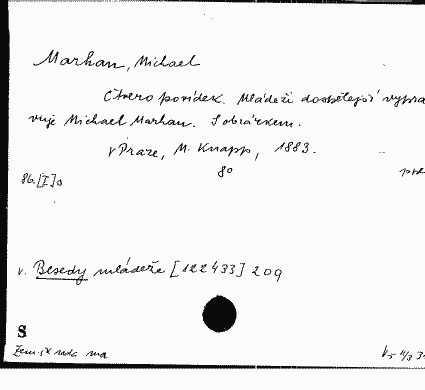 Marhan, Michael
Čtvero povídek. Mládeži dospělejší vypra
vuje Michael Marhan. S obrázkem.
V Praze, M. Knapp, 1883.
8°
86.[I]s
v. Besedy mládeže [122433] 209
S